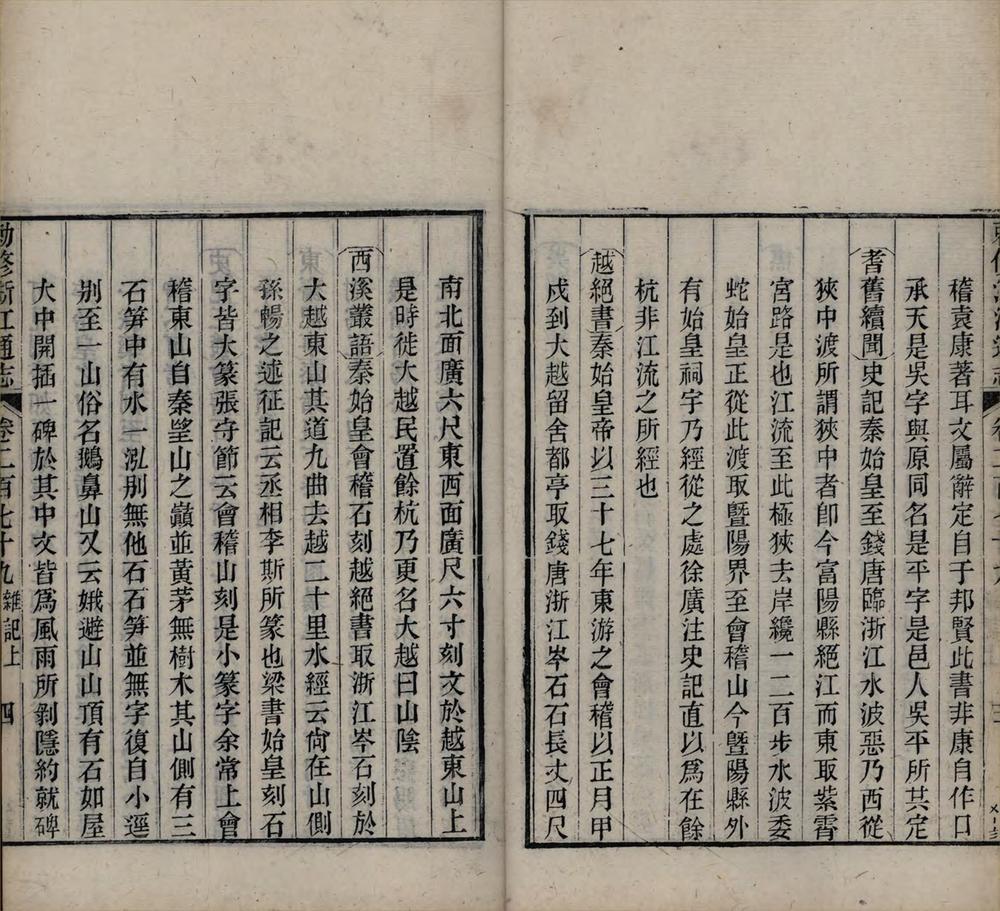 稽袁康著耳文屬辭定自于邦賢此書非康自作口
承天是吳字與原同名是平字是邑人吳平所共定
耆舊續聞史記秦始皇至錢唐臨浙江水波惡乃西從
狹中渡所謂狹中者卽今富陽縣絕江而東取紫霄
宮路是也江流至此極狹去岸纔一二百步水波委
蛇始皇正從此渡取暨陽界至會稽山今暨陽縣外
有始皇祠字乃經從之處徐廣注史記直以爲在餘
杭非江流之所經也
越絕書秦始皇帝以三十七年東游之會稽以正月甲
戌到大越留舍都亭取錢唐浙江岑石石長丈四尺
南北面廣六尺東西面廣尺六寸刻文於越東山上
是時徙大越民置餘杭乃更名大越曰山陰
西溪叢語秦始皇會稽石刻越絕書取浙江岑石刻於
大越東山其道九曲去越二十里水經云尙在山側
孫暢之述征記云丞相李斯所篆也梁書始皇刻石
字皆大篆張守節云會稽山刻是小篆字余常上會
稽東山自秦望山之巔並黃茅無樹木其山側有三
石筍中有水一泓別無他石石筍並無字復自小逕
別至一山俗名鵝鼻山又云娥避山山頂有石如屋
大中開插一碑於其中文皆爲風雨所剝隱約就碑
勅修浙江通志 卷二百七十九 雜記上 四